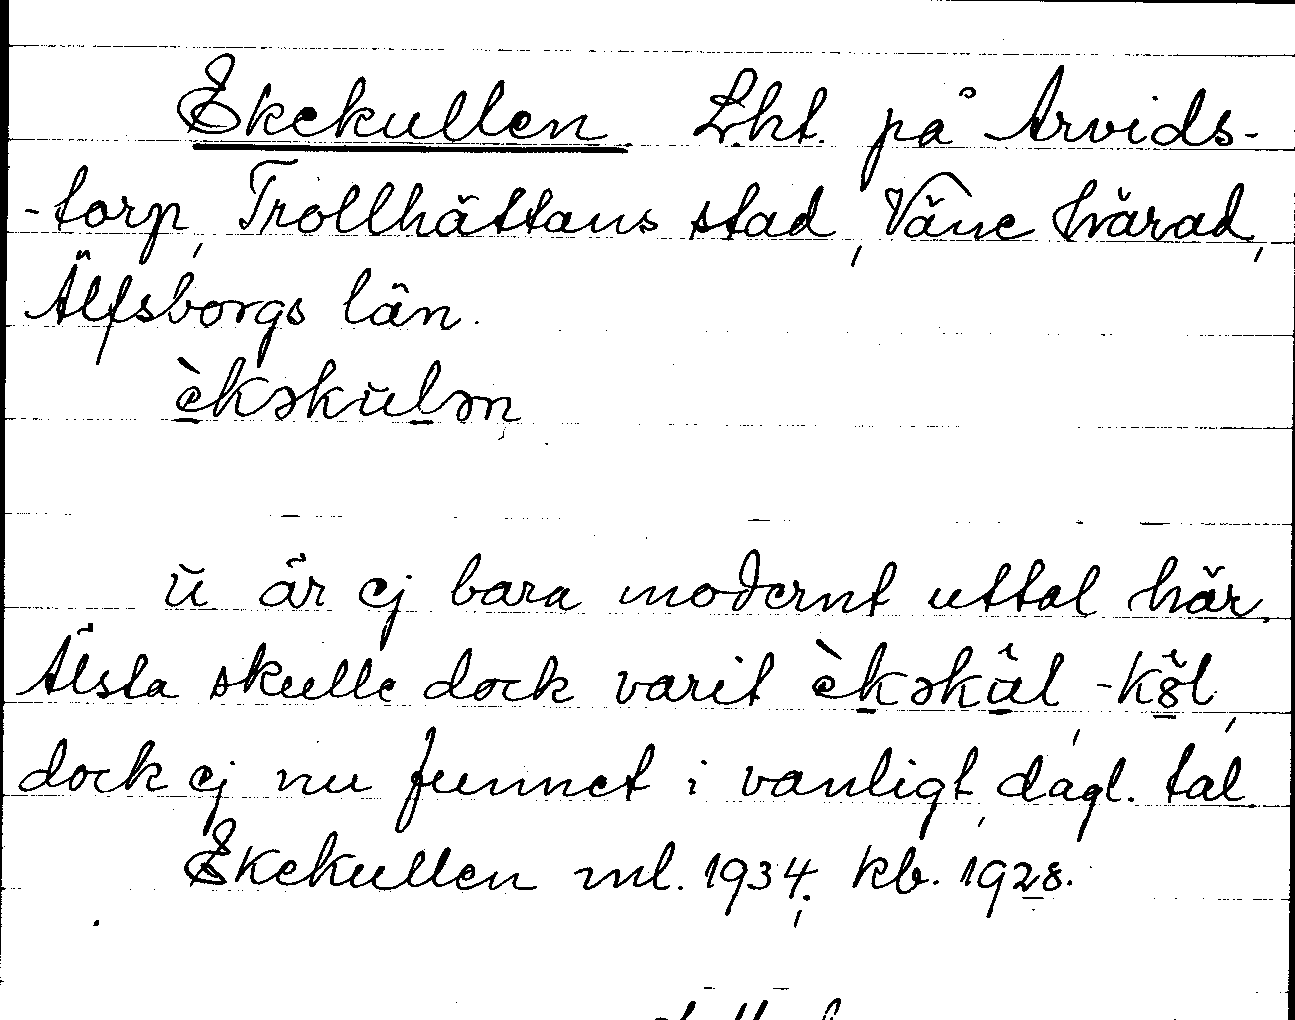 Ekekullen Lht. på Arvids-
-torp, Trollhättans stad, Väne härad,
Älfsborgs län.
èkəkŭlən
ŭ är ej bara modernt uttal här.
Älsta skulle dock varit èkəkŭl, -k8̆l,
dock ej nu funnet i vanligt, dagl. tal.
Ekekullen ml. 1934; kb. 1928.